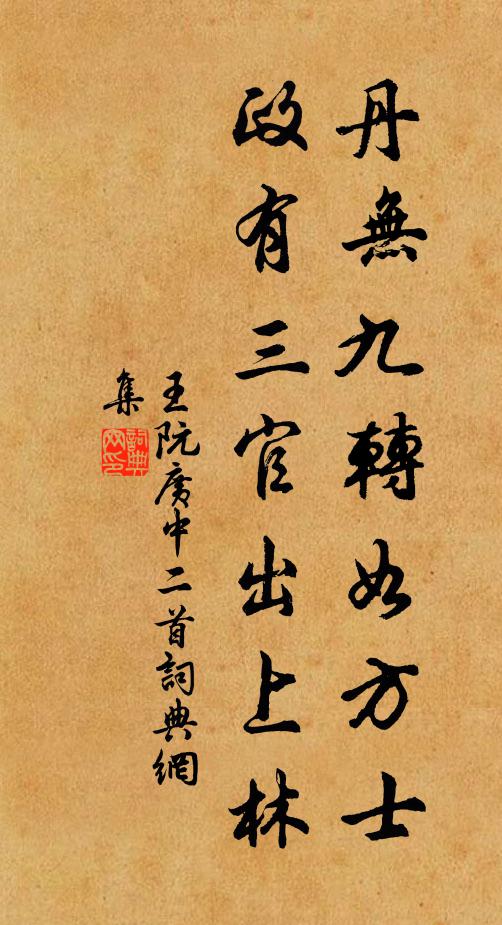 丹無九轉如方士
政有三官出上林
王阮廣中二首詞典網
集
詞典網印